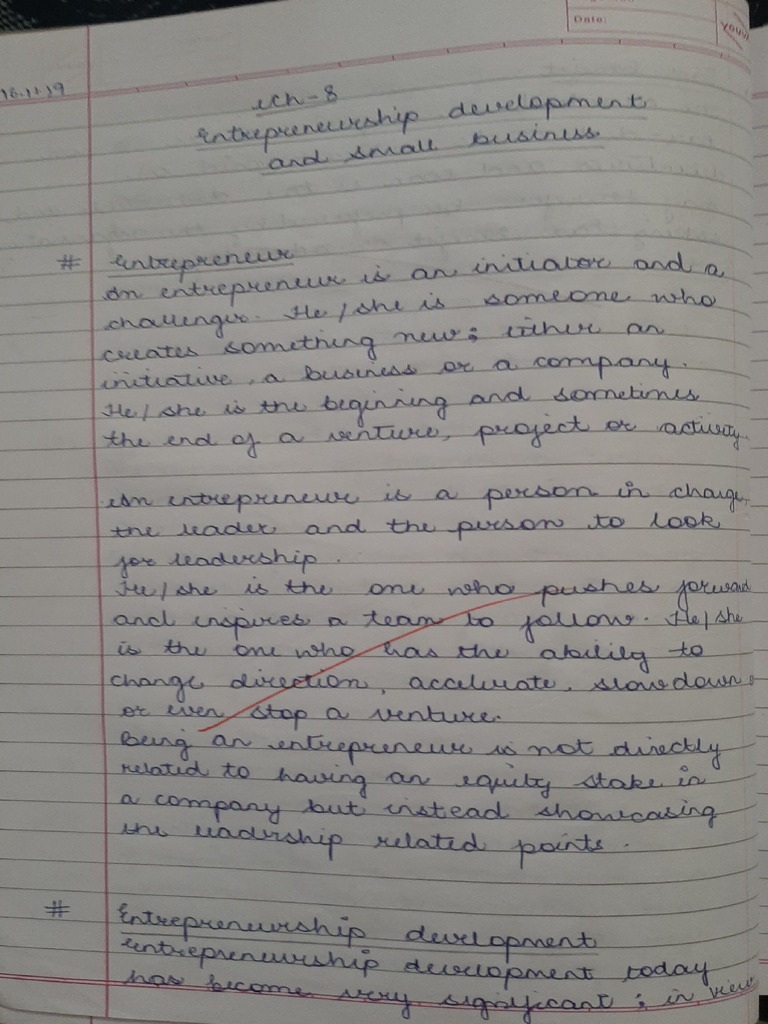 Date:
YOUVA
16.11.19
Ch-8
Entrepreneurship development
and small business
# Entrepreneur
An entrepreneur is an initiator and a
challenger. He/she is someone who
creates something new; either an
initiative, a business or a company.
He/she is the beginning and sometimes
the end of a venture, project or activity.
An entrepreneur is a person in charge,
the leader and the person to look
for leadership.
He/she is the one who pushes forward
and inspires a team to follow. He/she
is the one who has the ability to
change direction, accelerate, slow down
or even stop a venture.
Being an entrepreneur is not directly
related to having an equity stake in
a company but instead showcasing
the leadership related points.
# Entrepreneurship development
Entrepreneurship development today
has become very significant; in view